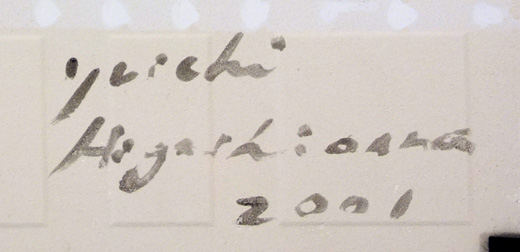 yuichi
Higashionna
2001